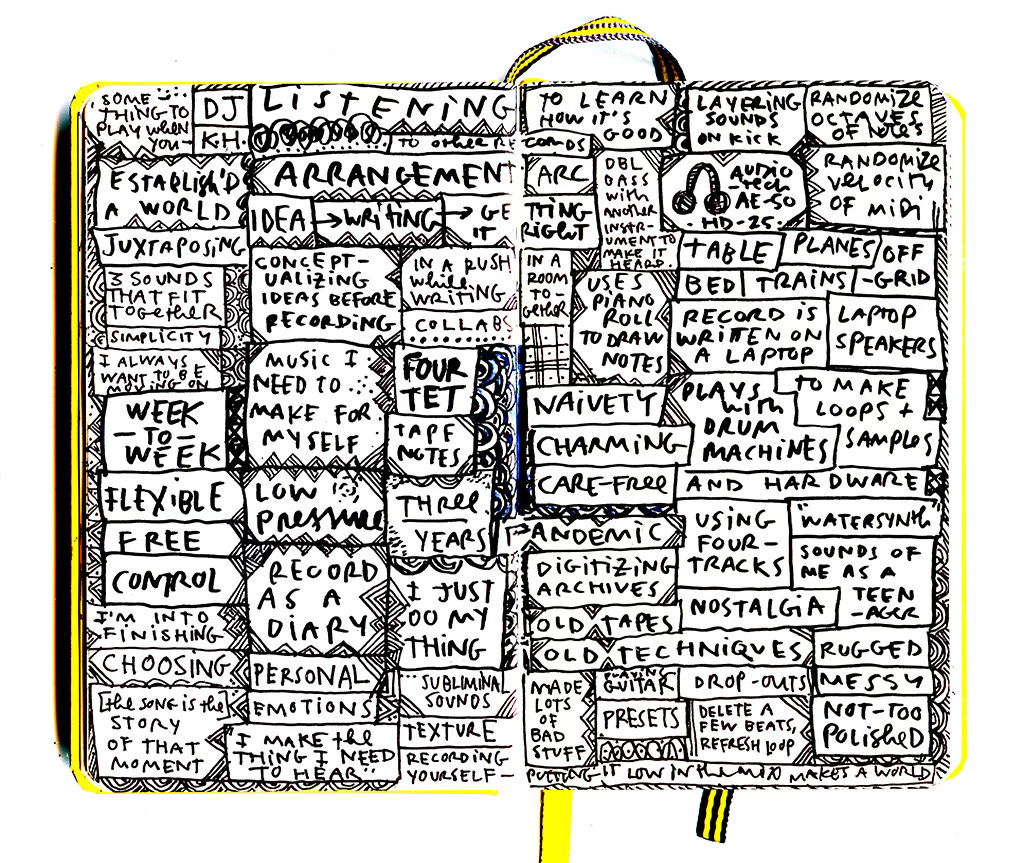 SOME
THING TO
PLAY when
you—
DJ
K.H.
LISTENING
TO OTHER RECORDS
TO LEARN
HOW IT'S
GOOD
LAYERING
SOUNDS
ON KICK
RANDOMIZE
OCTAVES
OF NOTES
ESTABLISH'D
A WORLD
ARRANGEMENT
ARC
IDEA → WRITING → GETTING
IT RIGHT
DBL
BASS
with
ANOTHER
INSTR-
UMENT TO
MAKE IT
HEARD.
AUDIO
-tech
AE-50
HD-25.
RANDOMIZE
VELOCITY
OF MIDI
JUXTAPOSING
3 SOUNDS
THAT FIT
TOGETHER
SIMPLICITY
I ALWAYS
WANT TO BE
MOVING ON
WEEK
—TO—
WEEK
FLEXIBLE
FREE
CONTROL
I'M INTO
FINISHING
CHOOSING
[the SONG IS the]
STORY
OF THAT
MOMENT
CONCEPT-
UALIZING
IDEAS BEFORE
RECORDING
MUSIC I
NEED TO
MAKE FOR
MYSELF
LOW
PRESSURE
RECORD
AS A
DIARY
PERSONAL
EMOTIONS
"I MAKE the
THING I NEED
TO HEAR"
IN A RUSH
while
WRITING
COLLABS
FOUR
TET
TAPE
NOTES
THREE
YEARS
I JUST
DO MY
THING
SUBLIMINAL
SOUNDS
TEXTURE
RECORDING
YOURSELF—
PUTTING IT LOW IN the MIX MAKES A WORLD
IN A
ROOM
TO-
GETHER
USES
PIANO
ROLL
TO DRAW
NOTES
TABLE
PLANES
OFF
-GRID
BED
TRAINS
RECORD IS
WRITTEN ON
A LAPTOP
LAPTOP
SPEAKERS
NAIVETY
CHARMING
CARE-FREE
PLAYS
with
DRUM
MACHINES
TO MAKE
LOOPS +
SAMPLES
AND HARDWARE
PANDEMIC
DIGITIZING
ARCHIVES
OLD TAPES
USING
FOUR-
TRACKS
"WATERSYNTH"
SOUNDS OF
ME AS A
TEEN
-AGER
NOSTALGIA
OLD TECHNIQUES
RUGGED
MADE
LOTS
OF
BAD
STUFF
PLAYING
GUITAR
PRESETS
DROP-OUTS
DELETE A
FEW BEATS,
REFRESH LOOP
MESSY
NOT-TOO
POLISHED